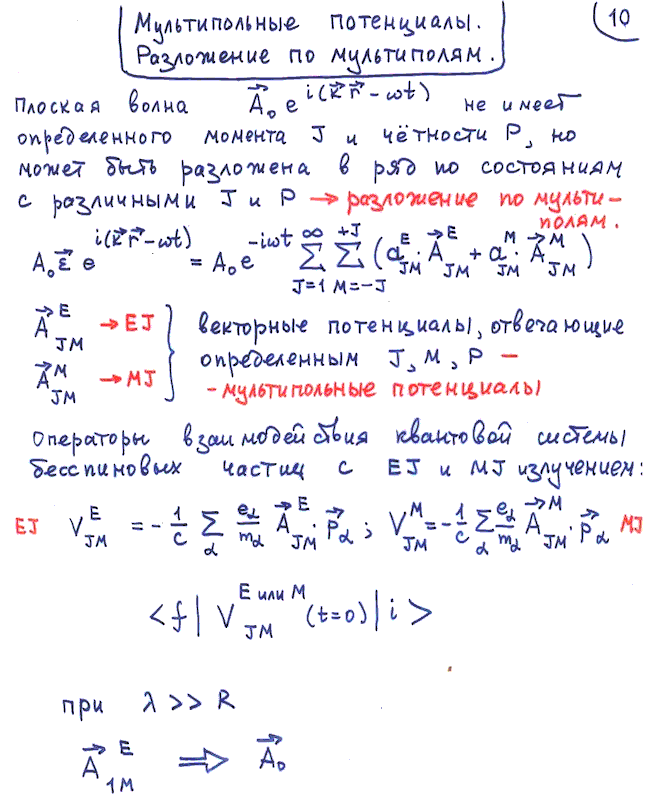 Мультипольные потенциалы.
Разложение по мультиполям.
10
Плоская волна A⃗₀ e^{i(k⃗r⃗-ωt)} не имеет
определенного момента J и чётности P, но
может быть разложена в ряд по состояниям
с различными J и P → разложение по мульти-
полям.
A₀ε⃗ e^{i(k⃗r⃗-ωt)} = A₀e^{-iωt} ∑_{J=1}^{∞} ∑_{M=-J}^{+J} (a^E_{JM}·A⃗^E_{JM} + a^M_{JM}·A⃗^M_{JM})
A⃗^E_{JM} → EJ } векторные потенциалы, отвечающие
A⃗^M_{JM} → MJ } определенным J, M, P –
- мультипольные потенциалы
Операторы взаимодействия квантовой системы
бесспиновых частиц с EJ и MJ излучением:
EJ V^E_{JM} = -1/c ∑_α e_α/m_α A⃗^E_{JM}·p⃗_α ; V^M_{JM} = -1/c ∑_α e_α/m_α A⃗^M_{JM}·p⃗_α MJ
<f| V^{E или M}_{JM} (t=0) |i>
при λ >> R
A⃗^E_{1M} ⇒ A⃗₀